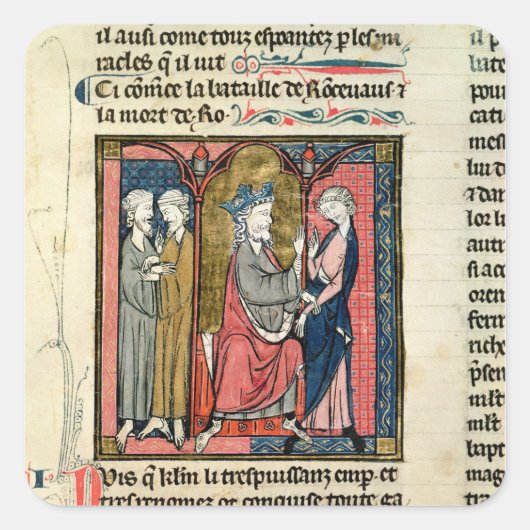 il ausi come touz espoantez p les mi
racles q il vit
Ci comence la bataille de Rocevaus &
la mort de Ro
Puis q kl'm li trespuissanz emp. et
tresrenomez ot conquise toute ga
il p
bate
pou
cati
mes
liu d
& dan
lor lu
autr
si aco
oren
ferm
riche
p̃sen
ml't
ml't
bapt
mag
tres